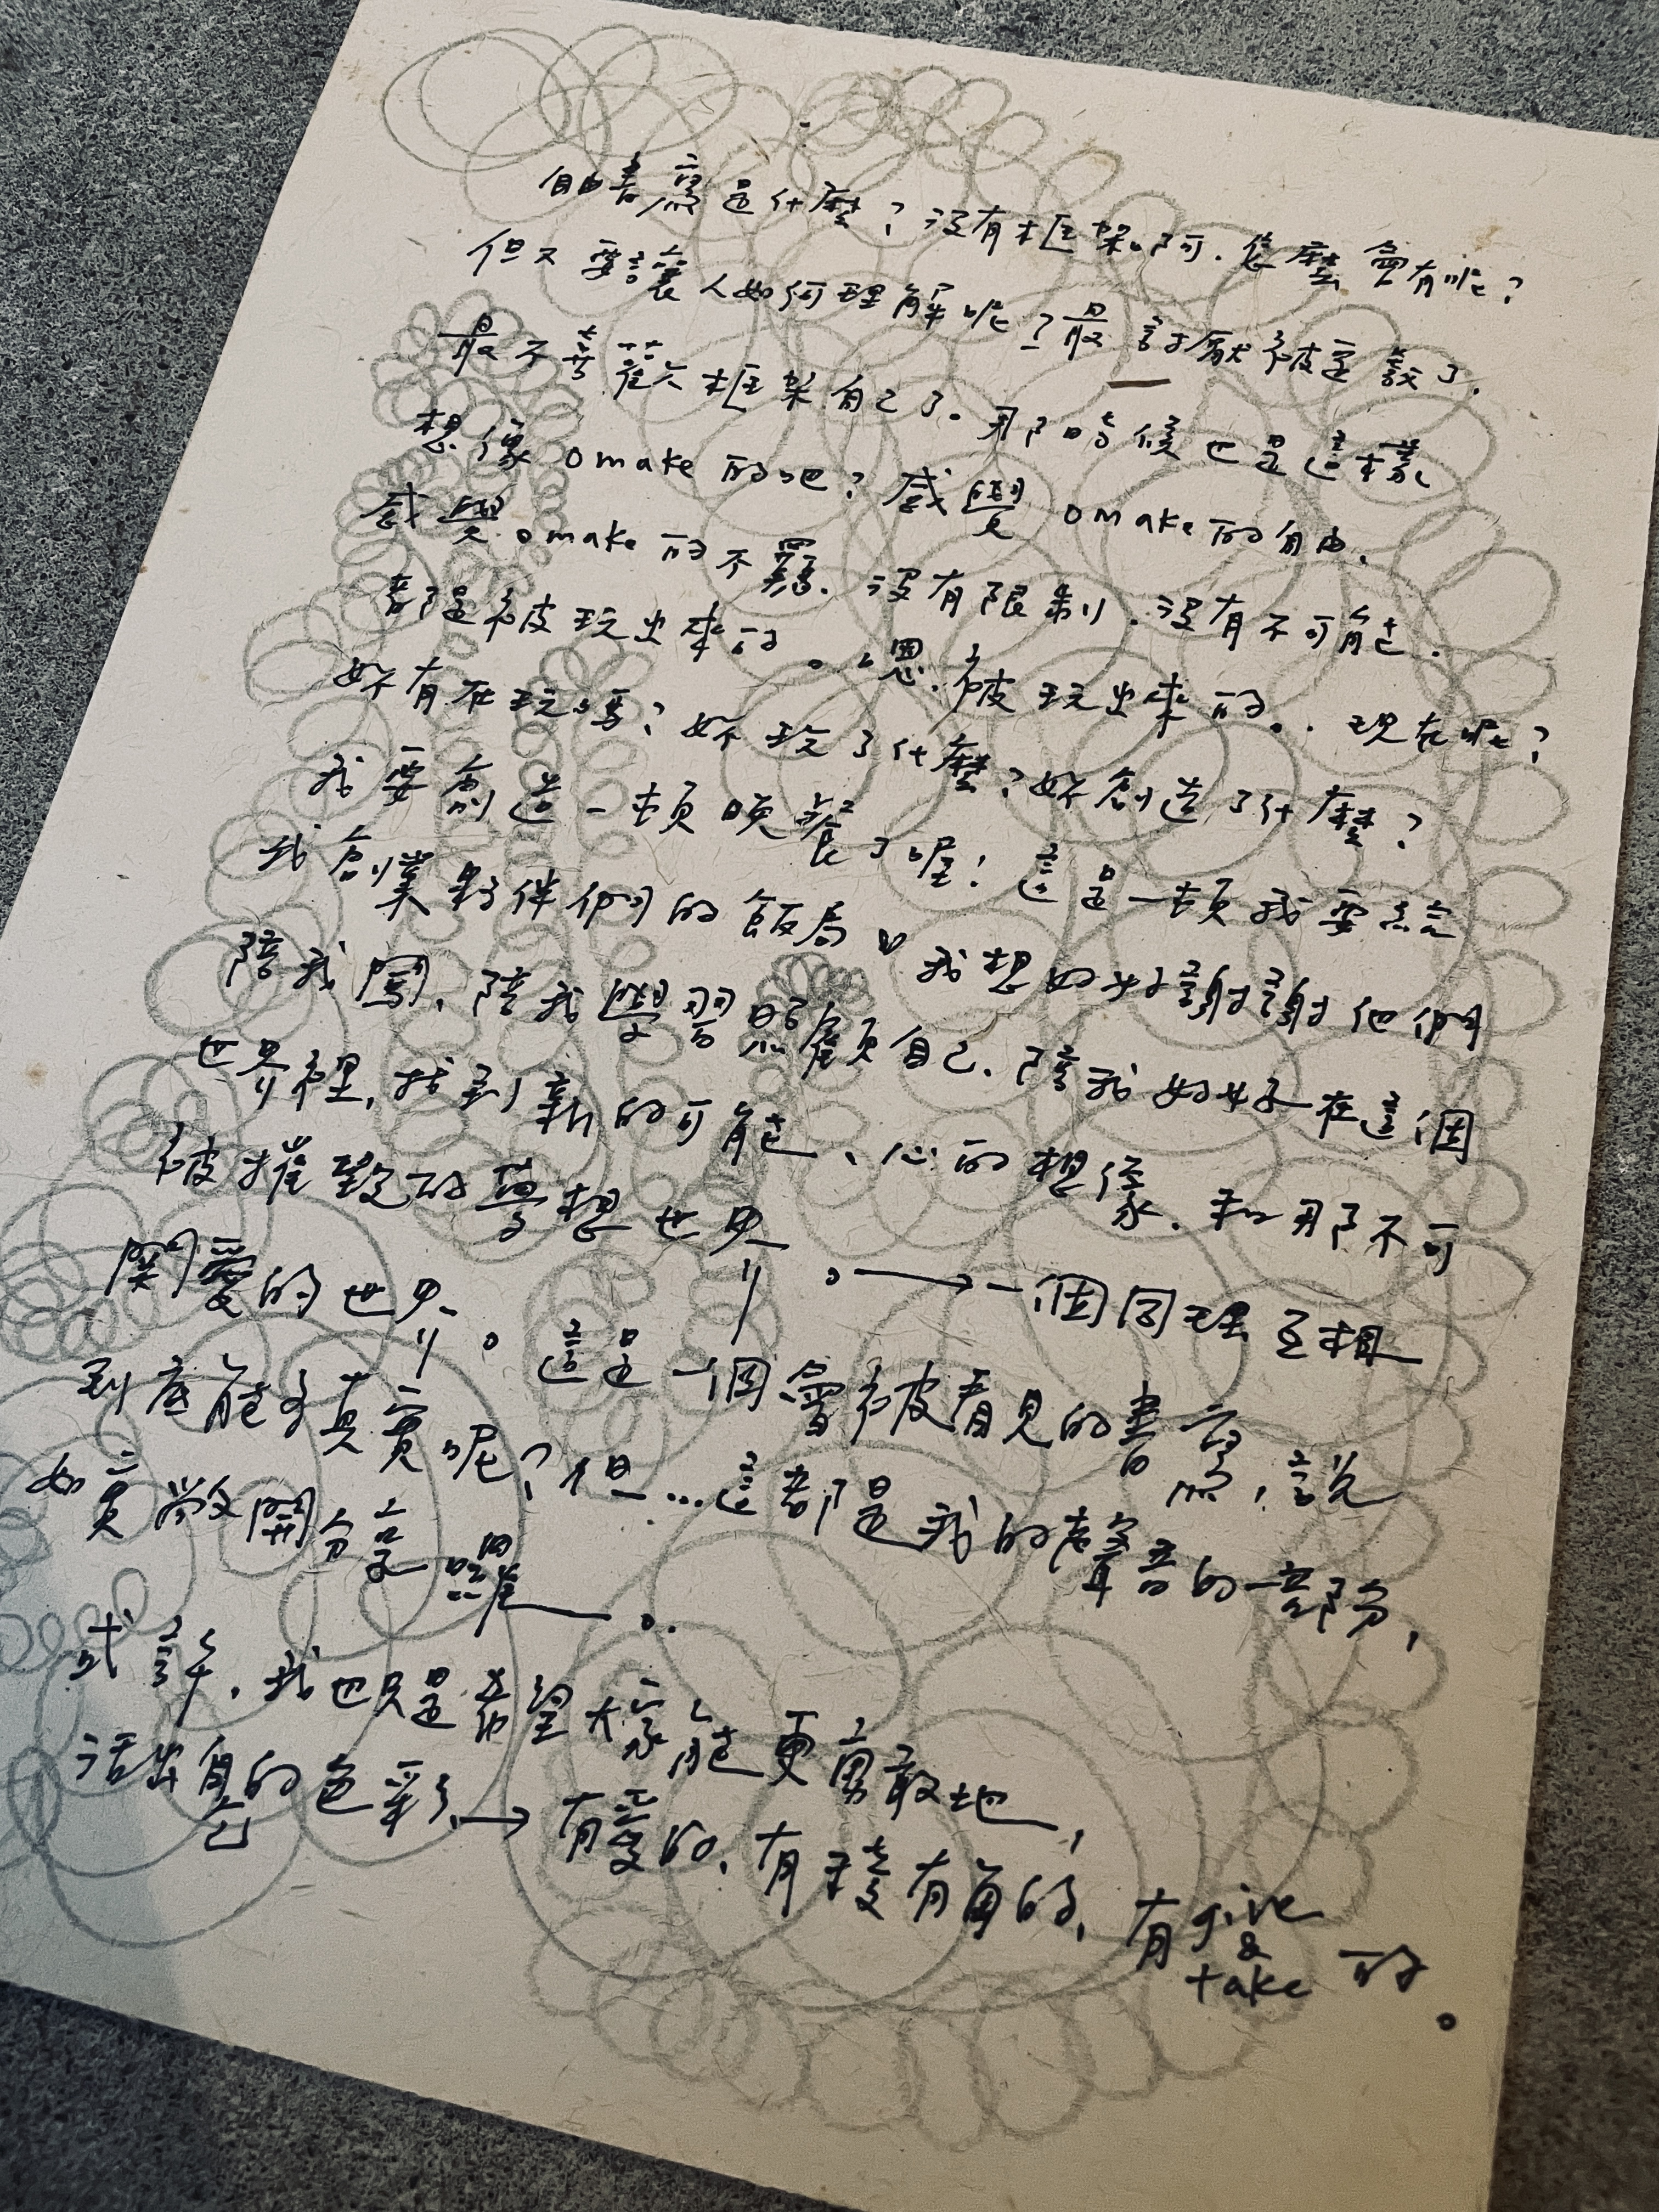 自由書寫是什麼？沒有框架啊．怎麼會有呢？
但又要讓人如何理解呢？最討厭被定義了．
最不喜歡框架自己了。那時候也是這樣
想像omake的吧？感覺omake的自由、
感覺omake的不羈．沒有限制．沒有不可能．
都是被玩出來的。嗯．被玩出來的．．現在呢？
妳有在玩嗎？妳玩了什麼？妳創造了什麼？
我要創造一頓晚餐了喔！這是一頓我要給
我創業夥伴們的飯局♡我想好好謝謝他們
陪我闖、陪我學習照顧自己、陪我好好在這個
世界裡，找到新的可能、心的想像．和那不可
被摧毀的夢想世界。→一個同理互相
關愛的世界。這是一個會被看見的書寫，說
到底能多真實呢？但…這都是我的聲音的一部份，
如實敞開分享一囉—。
或許．我也只是希望大家能更勇敢地，
活出自己的色彩、→有愛的、有稜有角的、有give & take的。